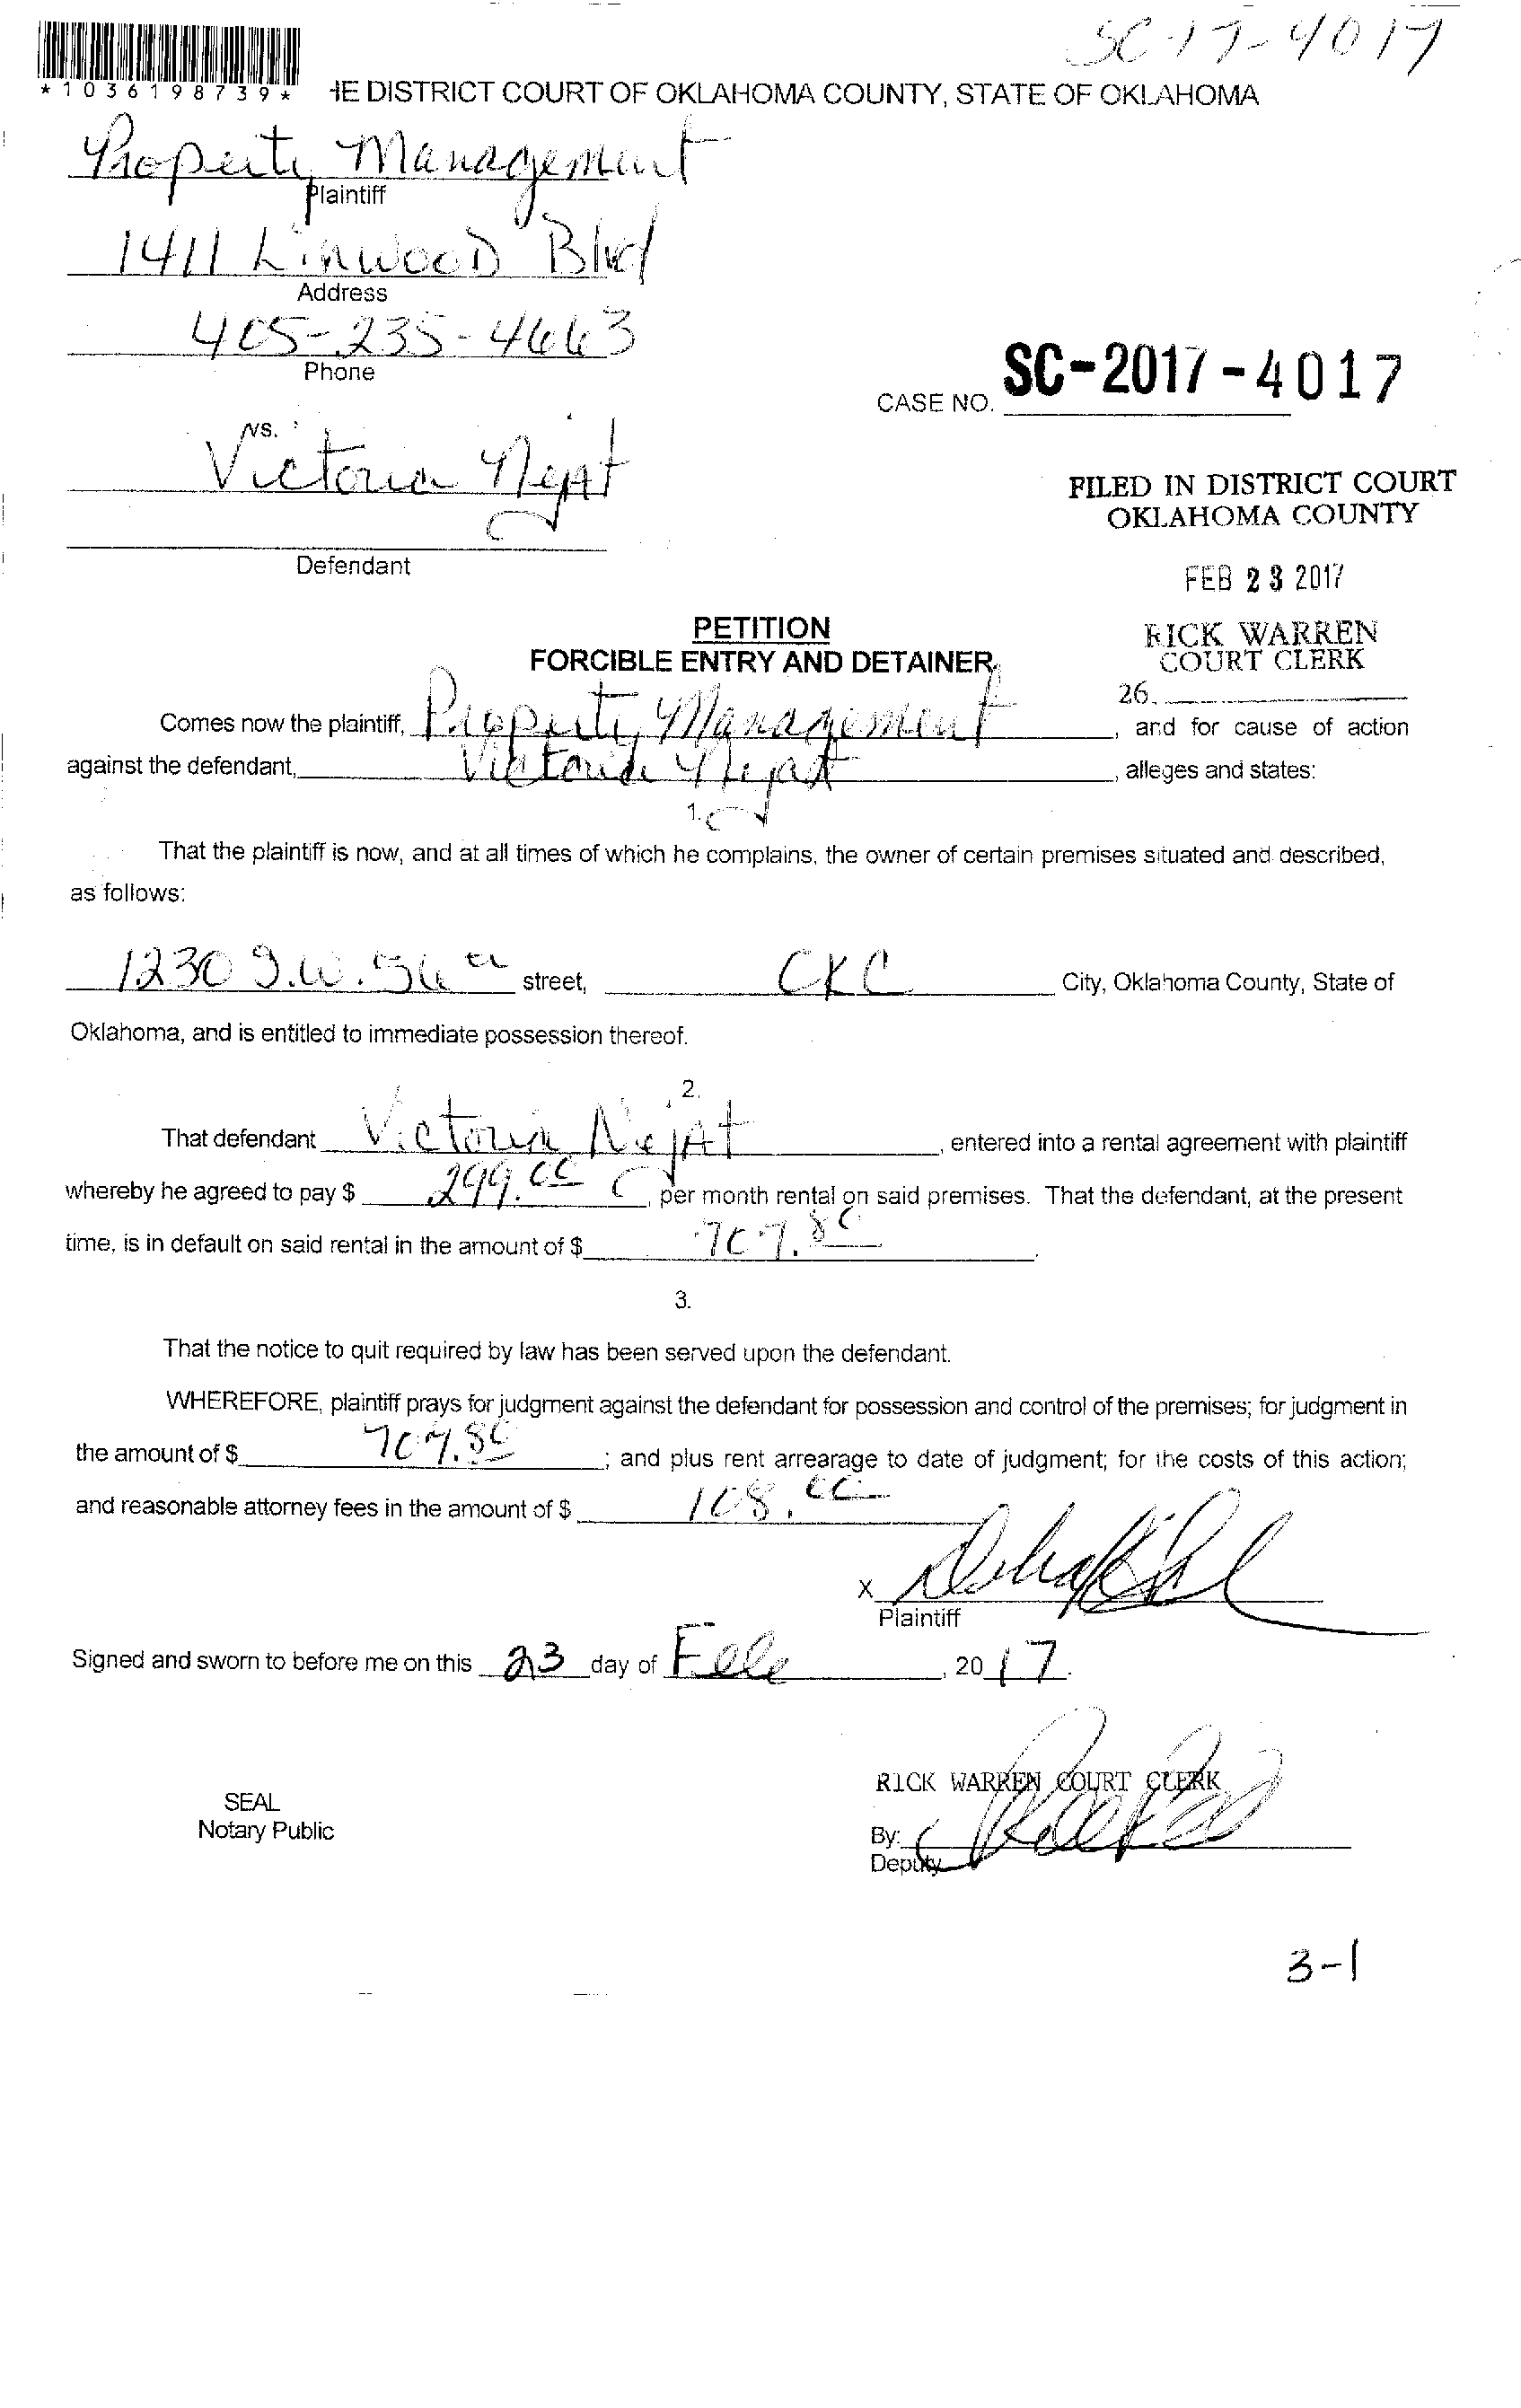 SC-17-4017
*1036198739* HE DISTRICT COURT OF OKLAHOMA COUNTY, STATE OF OKLAHOMA
Property Management
Plaintiff
1411 Linwood Blvd
Address
405-235-4663
Phone
CASE NO. SC-2017-4017
vs.
Victoria Nejat
Defendant
FILED IN DISTRICT COURT
OKLAHOMA COUNTY
FEB 23 2017
RICK WARREN
COURT CLERK
26
PETITION
FORCIBLE ENTRY AND DETAINER
Comes now the plaintiff, Property Management, and for cause of action
against the defendant, Victoria Nejat, alleges and states:
1.
That the plaintiff is now, and at all times of which he complains, the owner of certain premises situated and described,
as follows:
1230 S.W. 56th street, OKC City, Oklahoma County, State of
Oklahoma, and is entitled to immediate possession thereof.
2.
That defendant Victoria Nejat, entered into a rental agreement with plaintiff
whereby he agreed to pay $ 299.00, per month rental on said premises. That the defendant, at the present
time, is in default on said rental in the amount of $ 707.80.
3.
That the notice to quit required by law has been served upon the defendant.
WHEREFORE, plaintiff prays for judgment against the defendant for possession and control of the premises; for judgment in
the amount of $ 707.80; and plus rent arrearage to date of judgment; for the costs of this action;
and reasonable attorney fees in the amount of $ 108.00
X
Plaintiff
Signed and sworn to before me on this 23 day of Feb, 2017.
RICK WARREN COURT CLERK
SEAL
Notary Public
By:
Deputy
3-1